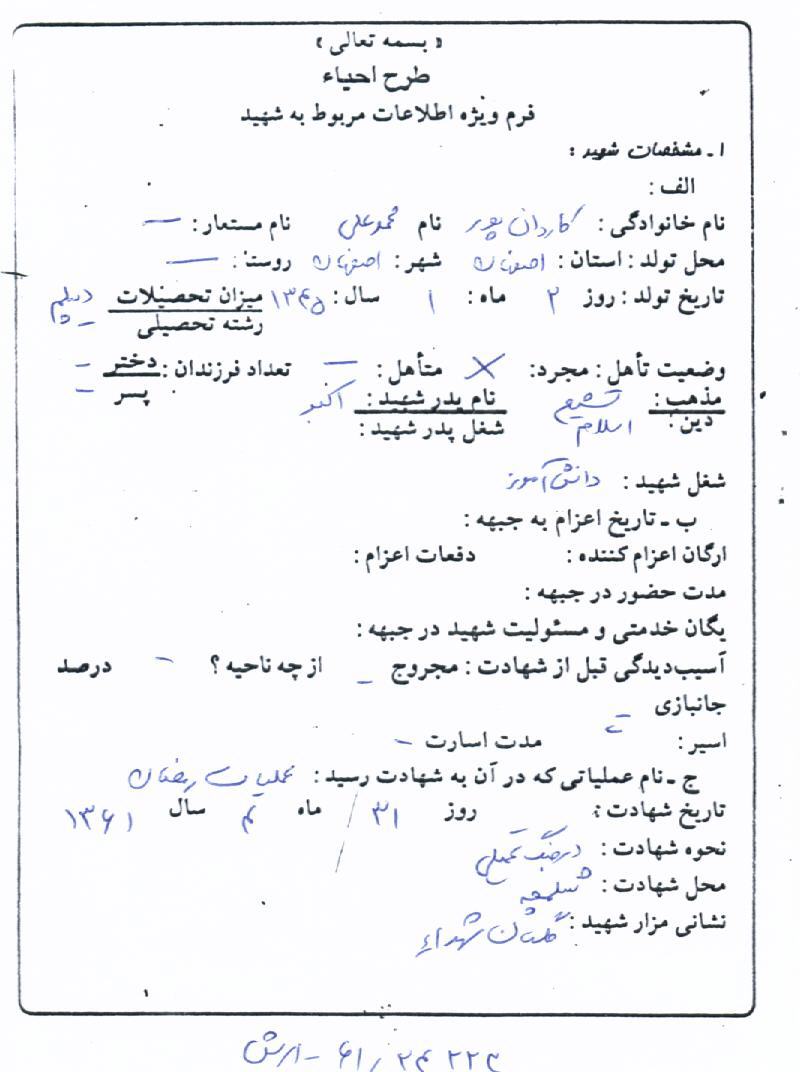 « بسمه تعالی »
طرح احیاء
فرم ویژه اطلاعات مربوط به شهید
۱ ـ مشخصات شهید :
الف :
نام خانوادگی : کاردان پور نام محمدعلی نام مستعار : —
محل تولد : استان : اصفهان شهر : اصفهان روستا : —
تاریخ تولد : روز ۲ ماه : ۱ سال : ۱۳۴۵ میزان تحصیلات دیپلم
رشته تحصیلی –
وضعیت تأهل : مجرد : × متأهل : — تعداد فرزندان : دختر –
پسر –
مذهب : تشیع نام پدر شهید : اکبر
دین : اسلام شغل پدر شهید :
شغل شهید : دانش آموز
ب ـ تاریخ اعزام به جبهه :
ارگان اعزام کننده : دفعات اعزام :
مدت حضور در جبهه :
یگان خدمتی و مسئولیت شهید در جبهه :
آسیب‌دیدگی قبل از شهادت : مجروح – از چه ناحیه ؟ – درصد
جانبازی –
اسیر : مدت اسارت –
ج ـ نام عملیاتی که در آن به شهادت رسید : عملیات رمضان
تاریخ شهادت : روز ۳۱ / ماه ۴ سال ۱۳۶۱
نحوه شهادت : درجنگ تحمیلی
محل شهادت : شلمچه
نشانی مزار شهید : گلستان شهداء
۱